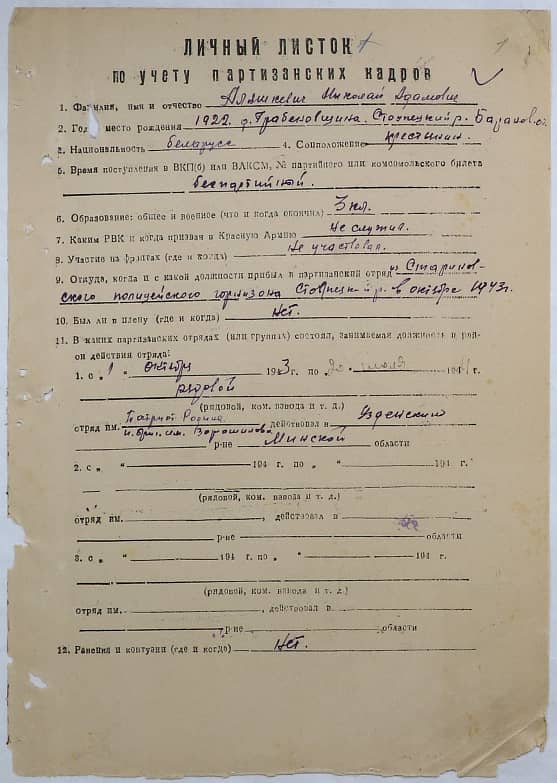 1
ЛИЧНЫЙ ЛИСТОК
по учету партизанских кадров
1. Фамилия, имя и отчество Аляшкевич Николай Адамович
2. Год и место рождения 1922 д. Грабеновщина Столпецкий р. Баранов. о.
3. Национальность беларусс 4. Соцположение крестьянин
5. Время поступления в ВКП(б) или ВЛКСМ, № партийного или комсомольского билета
беспартийной.
6. Образование: общее и военное (что и когда окончил) 3 кл.
7. Каким РВК и когда призван в Красную Армию Не служил.
8. Участие на фронтах (где и когда) Не участвовал.
9. Откуда, когда и с какой должности прибыл в партизанский отряд из Старинов-
ского полицейского горнизона Столпецкий р. в октябре 1943 г.
10. Был ли в плену (где и когда) Нет.
11. В каких партизанских отрядах (или группах) состоял, занимаемая должность и рай-
он действия отряда:
1. с „1 „ октября 1943 г. по „20 „ июля 1944 г.
рядовой
(рядовой, ком. взвода и т. д.)
отряд им. Патриот Родины действовал в Узденском
им. Ворошилова р-не Минской области
2. с „ „ 194 г. по „ „ 194 г.
(рядовой, ком. взвода и т. д.)
отряд им. , действовал в
р-не области
3. с „ „ 194 г. по „ „ 194 г.
(рядовой, ком. взвода и т. д.)
отряд им. , действовал в
р-не области
12. Ранения и контузии (где и когда) Нет.